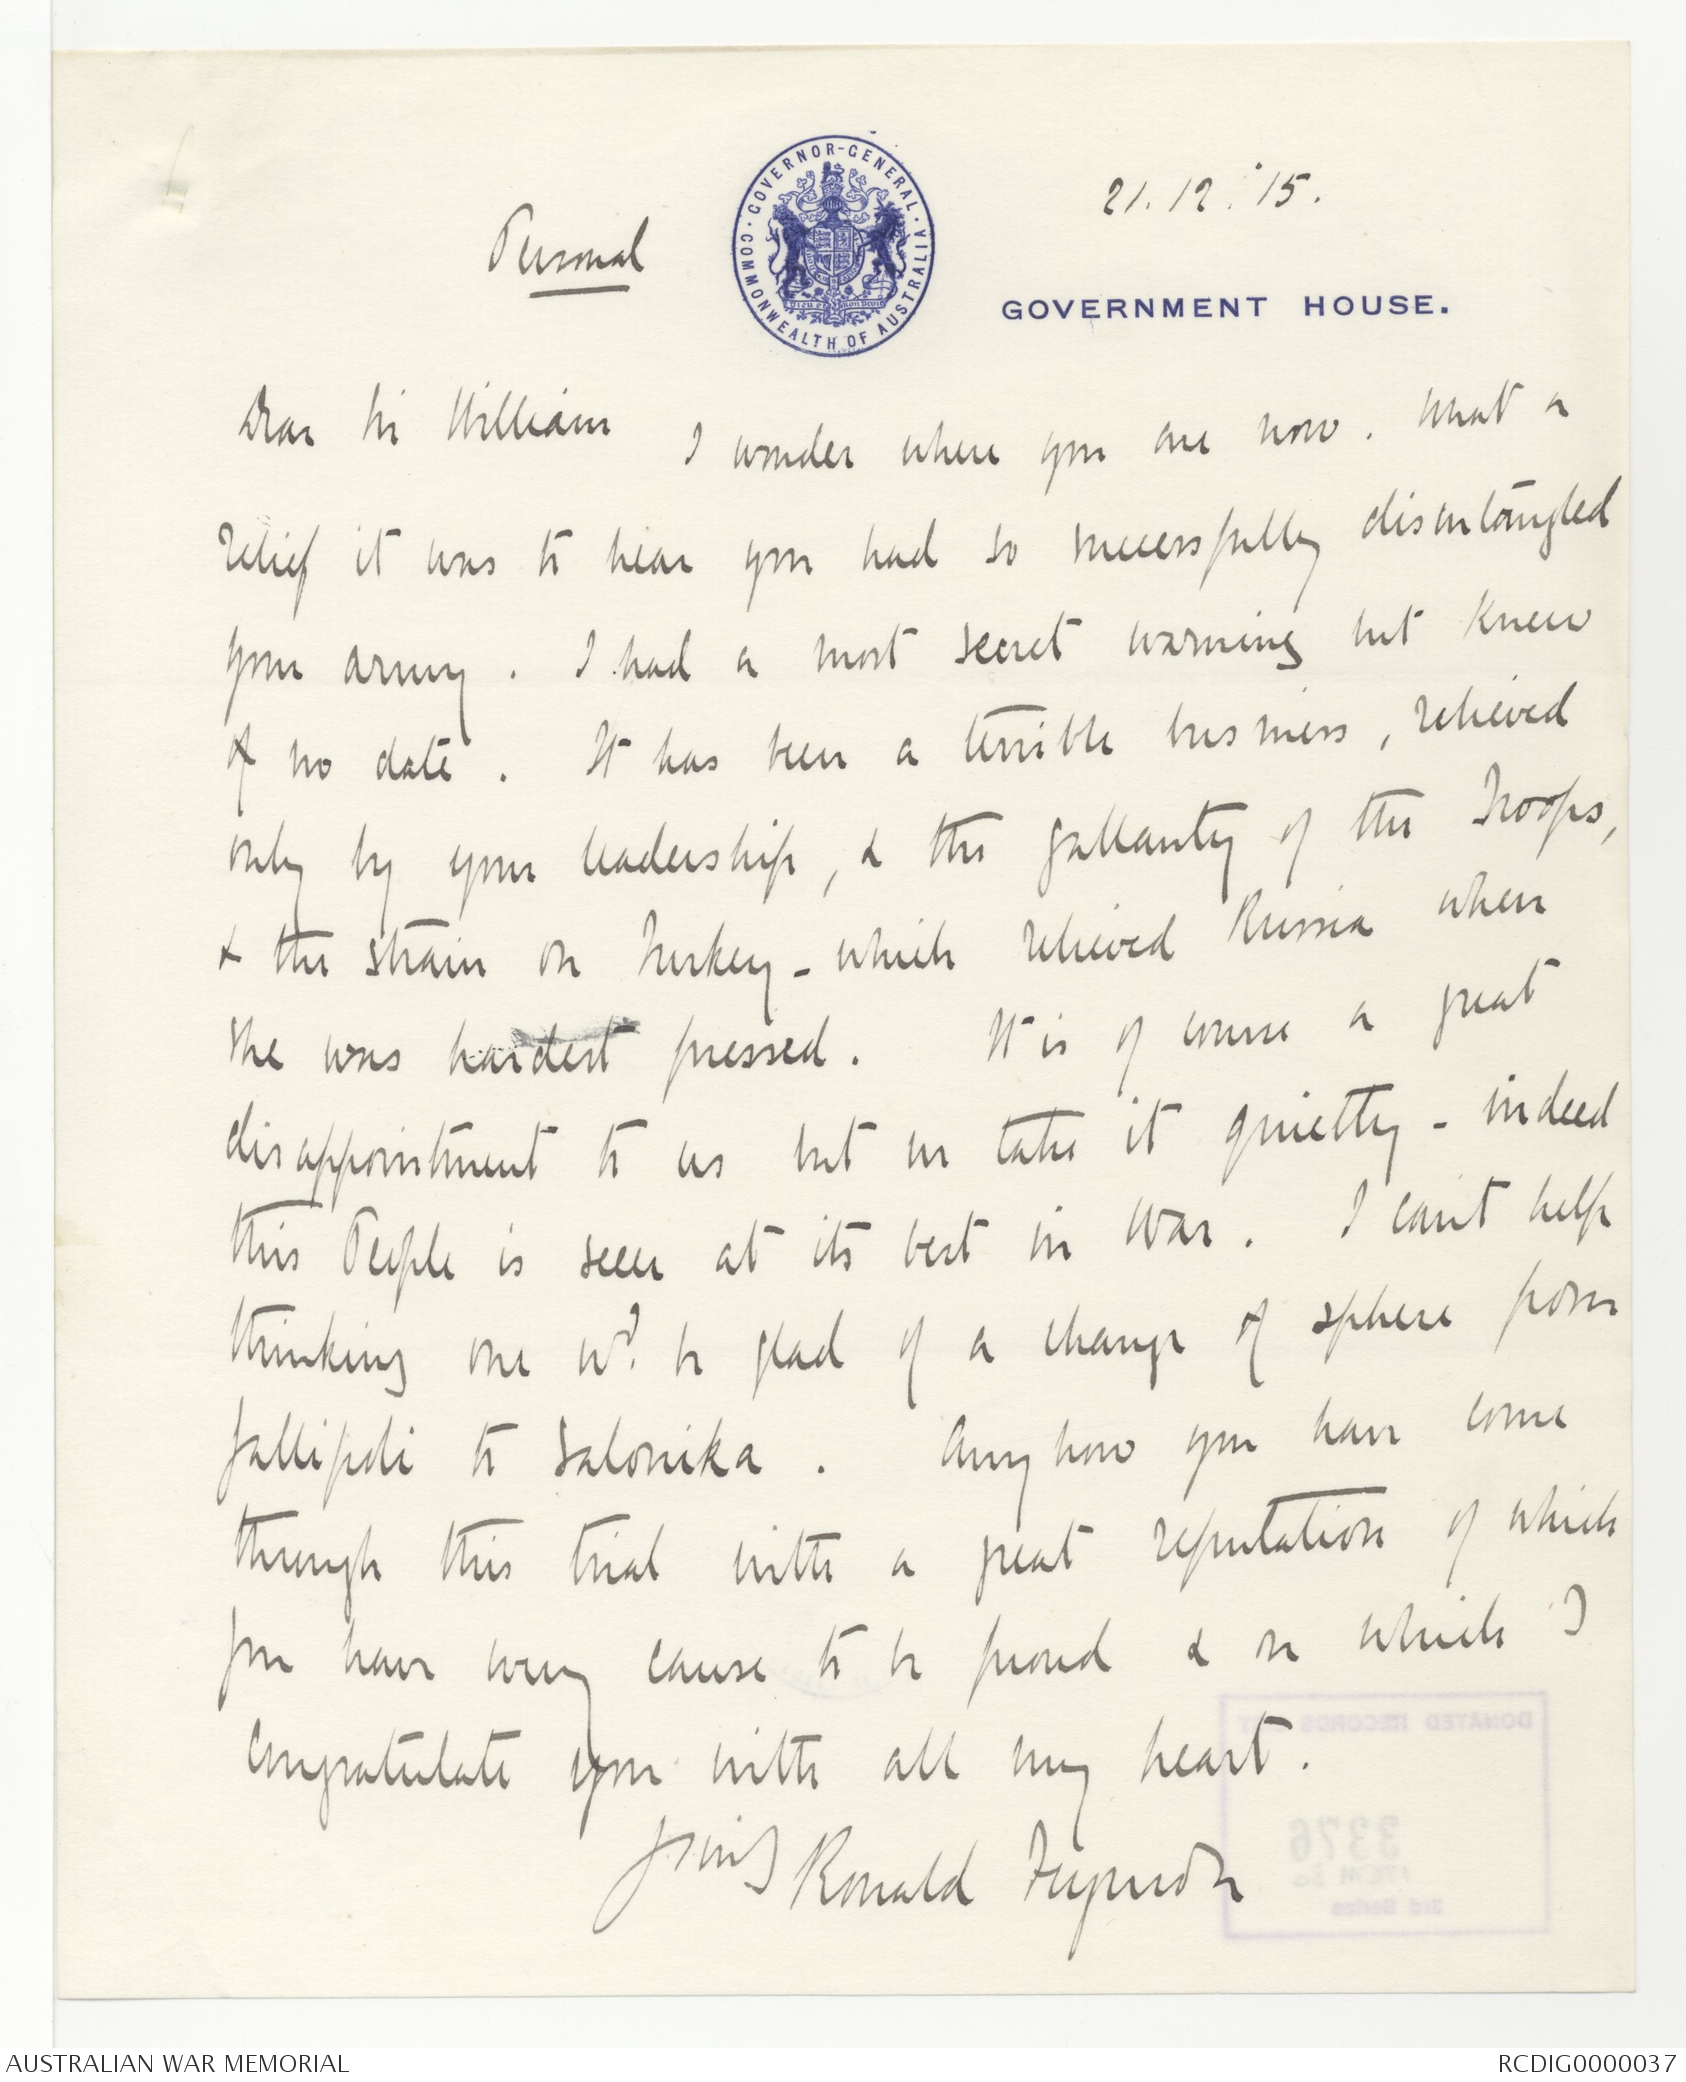 21.12.'15.
Personal
GOVERNOR-GENERAL · COMMONWEALTH OF AUSTRALIA ·
GOVERNMENT HOUSE.
Dear Sir William I wonder where you are now. What a
relief it was to hear you had so successfully disentangled
your army. I had a most secret warning but knew
of no date. It has been a terrible business, relieved
only by your leadership, & the gallantry of the Troops,
& the strain on Turkey - which relieved Russia when
she was hardest pressed. It is of course a great
disappointment to us but we take it quietly - indeed
this People is seen at its best in War. I can't help
thinking one wd. be glad of a change of sphere from
Gallipoli to Salonika. Anyhow you have come
through this trial with a great reputation of which
you have every cause to be proud & on which I
congratulate you with all my heart.
Yours Ronald Ferguson
DONATED RECORDS LIST
3376
ITEM
3rd Series
AUSTRALIAN WAR MEMORIAL
RCDIG0000037